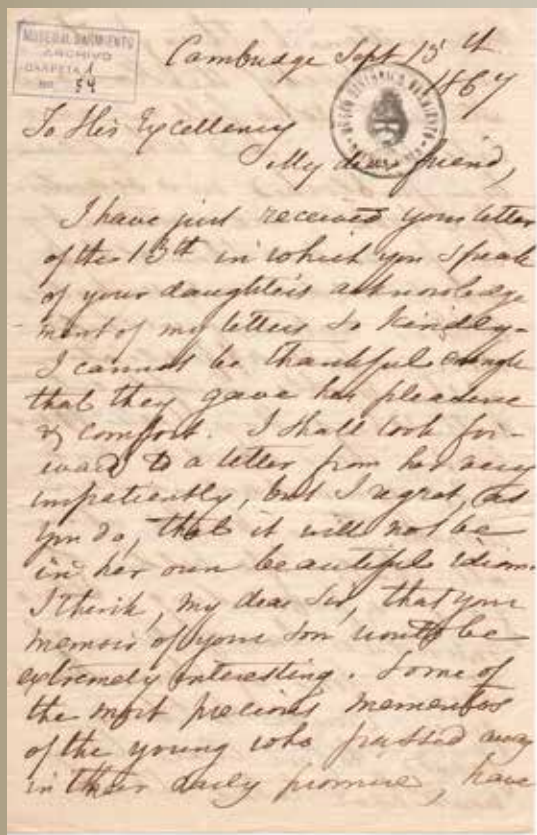 MUSEO H. SARMIENTO
ARCHIVO
CARPETA 1
No 54
Cambridge Sept 15th
1867
MUSEO HISTORICO SARMIENTO
To His Excellency
My dear friend,
I have just received your letter
of the 13th in which you speak
of your daughter's acknowledge
ment of my letters so kindly-
I cannot be thankful enough
that they gave her pleasure
& comfort. I shall look for-
ward to a letter from her very
impatiently, but I regret, as
you do, that it will not be
in her own beautiful idiom.
I think, my dear Sir, that your
memoir of your son would be
extremely interesting. Some of
the most precious mementos
of the young who passed away
in their early promise, have